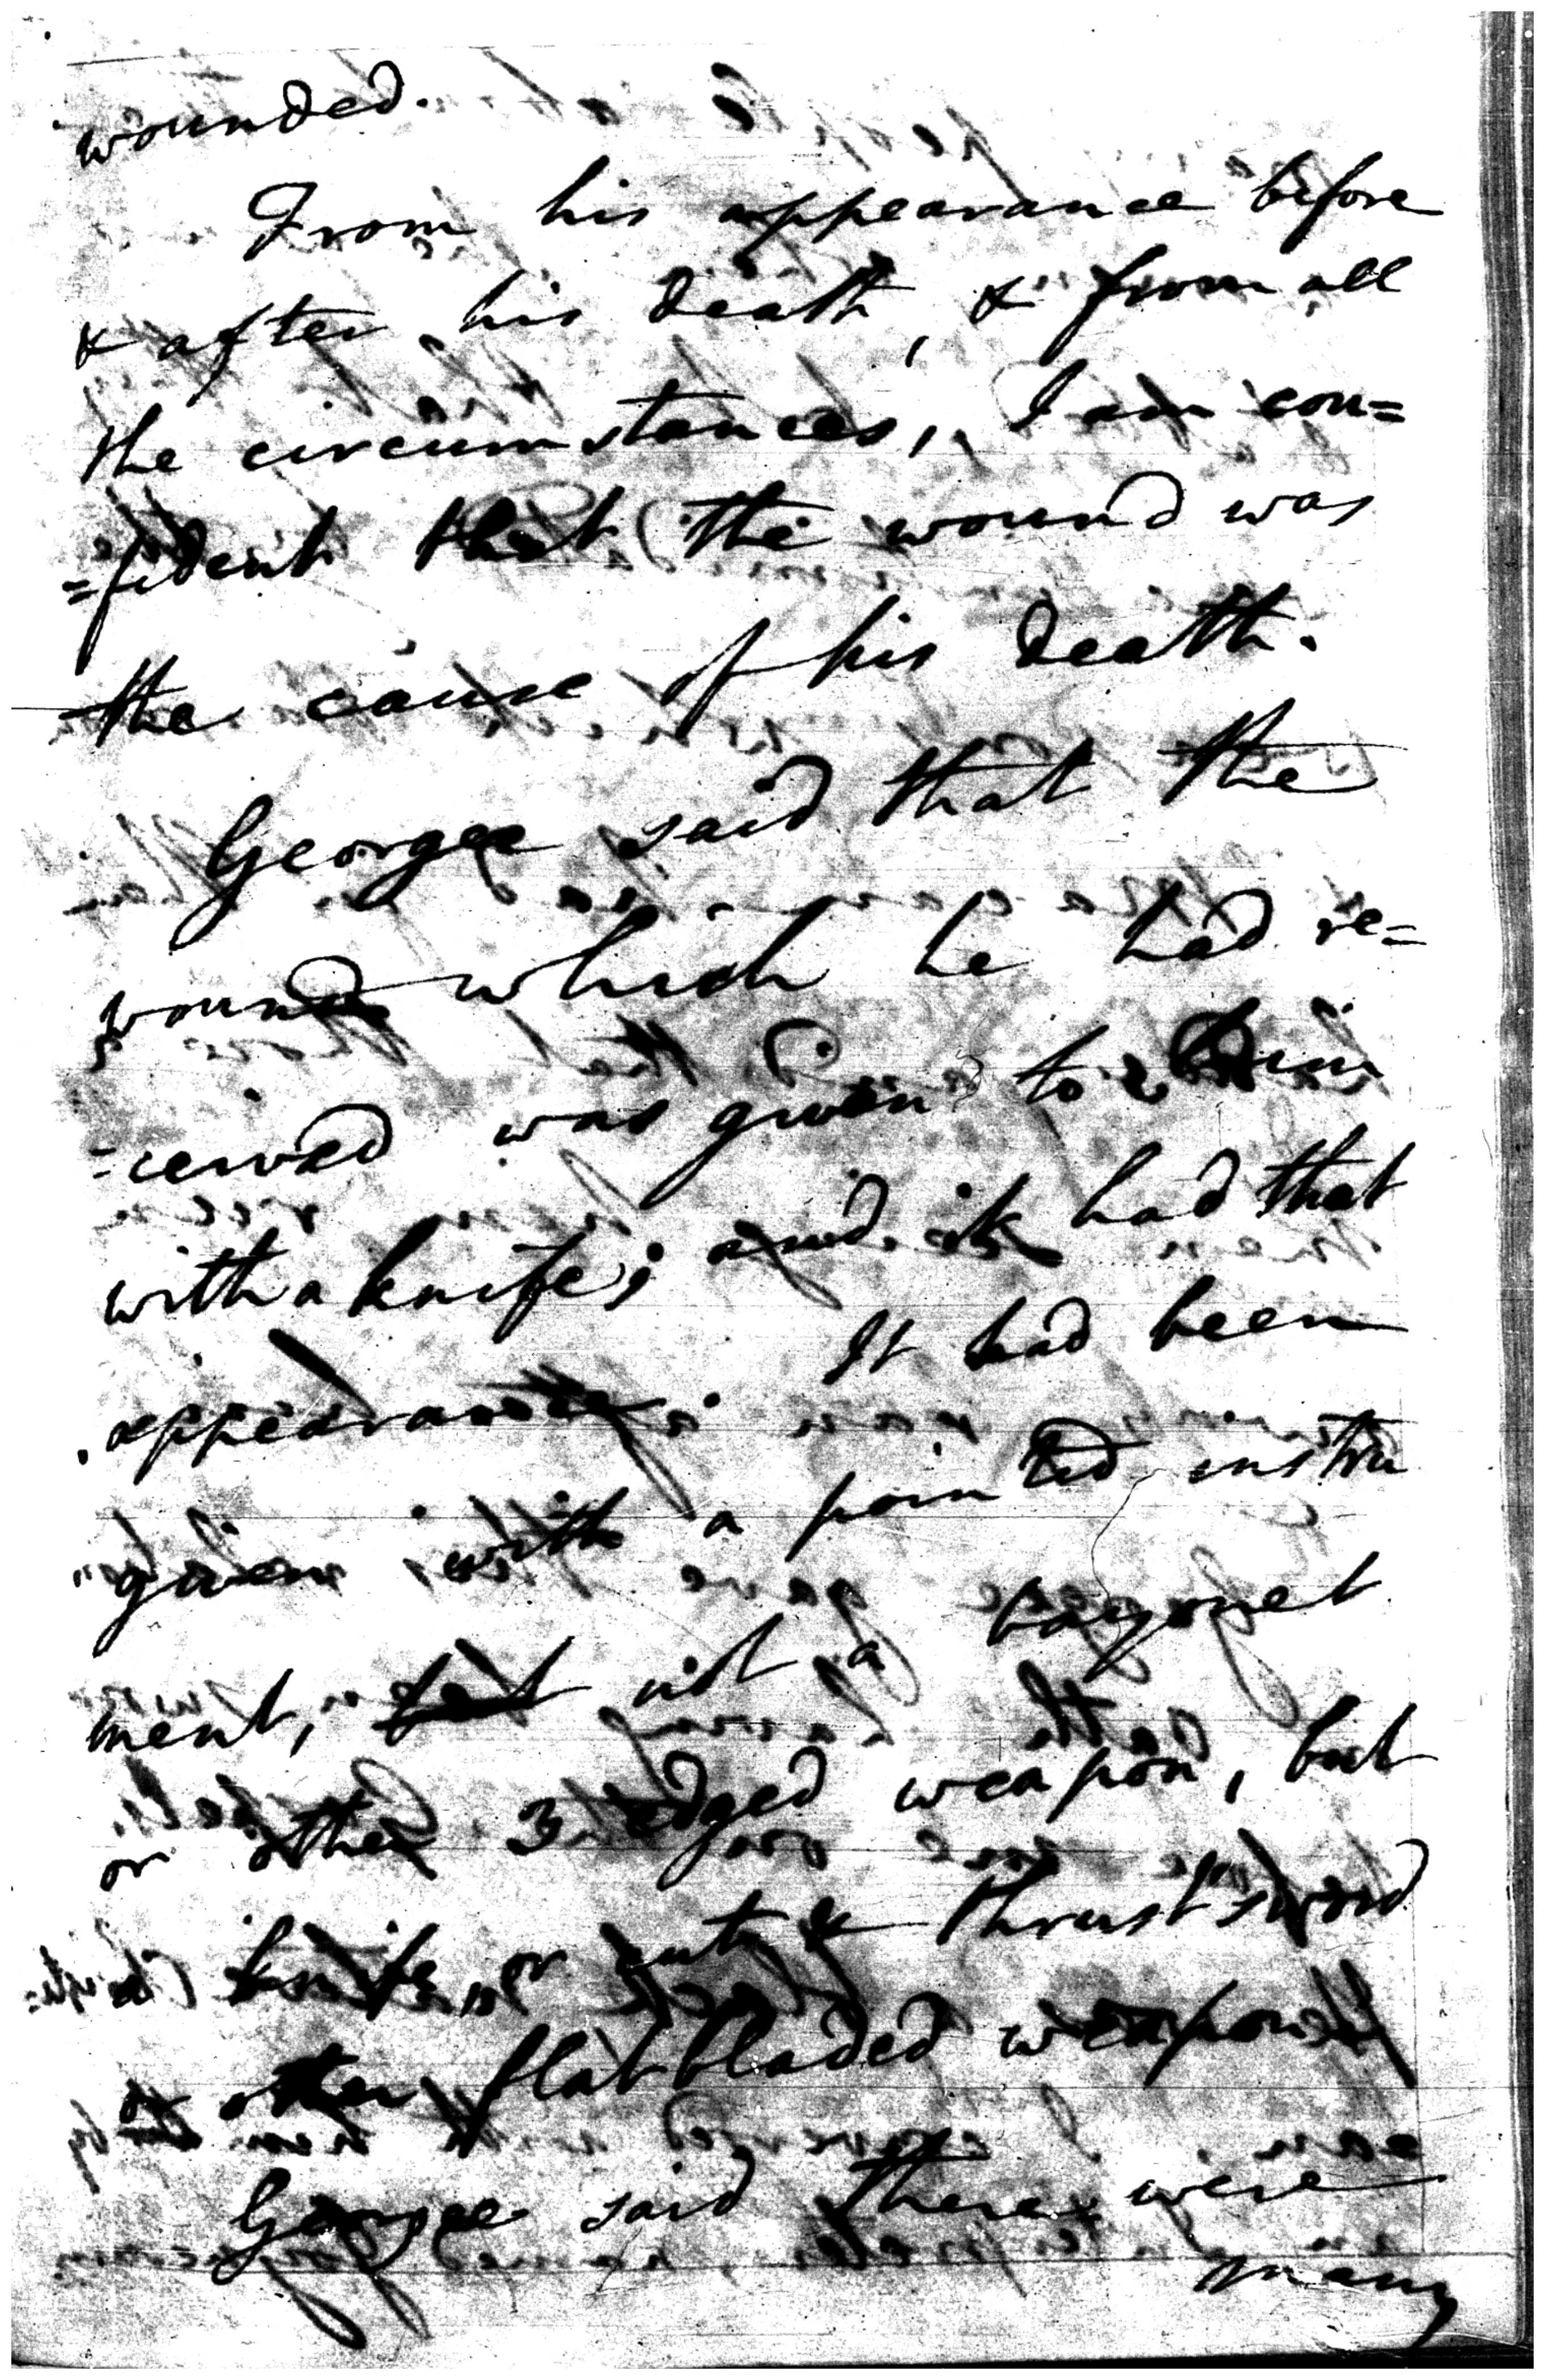 wounded.
From his appearance before
& after his death, & from all
the circumstances, I am con=
=fident that the wound was
the cause of his death.
George said that the
wound which he had re=
=ceived was given to him
with a knife; and it had that
appearance. It had been
given with a pointed instru
ment, not a bayonet
or other 3 edged weapon, but
a knife, or cut & thrust sword
or other flat bladed weapon
George said there were
many